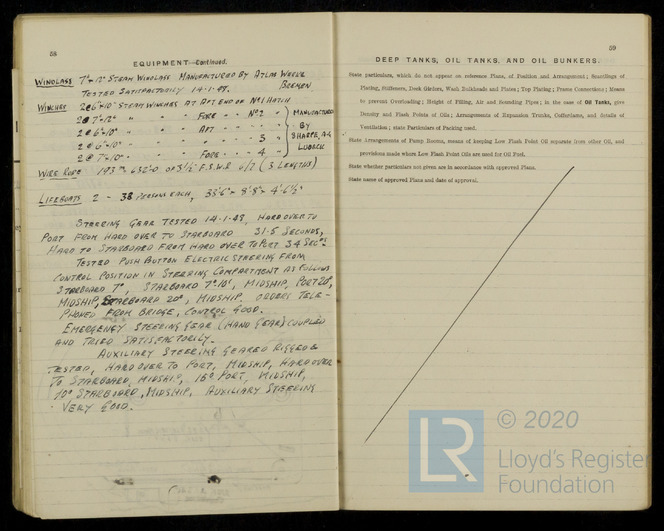 58
EQUIPMENT—Continued.
WINDLASS 7"×12" STEAM WINDLASS MANUFACTURED BY ATLAS WERKE
BREMEN
TESTED SATISFACTORILY 14-1-49.
WINCHES 2@6"×10" STEAM WINCHES AT AFT END OF No1 HATCH
2@7"×12" " " FORE " No2 "
2@6"×10" " " AFT " " "
2@6"×10" " " " " 3 "
2@7"×10" " " FORE " 4 "
MANUFACTURED
BY
LUBECK
WIRE ROPE 193 OF 3½" F.S.W.R. 6/ (3 LENGTHS)
LIFEBOATS 2 - 38 PERSONS EACH, 33'6" × 8'8" × 4'6½"
STEERING GEAR TESTED 14-1-49, HARD OVER TO
PORT FROM HARD OVER TO STARBOARD 31.5 SECONDS,
HARD TO STARBOARD FROM HARD OVER TO PORT 34 SECS
TESTED PUSH BUTTON ELECTRIC STEERING FROM
CONTROL POSITION IN STEERING COMPARTMENT AS FOLLOWS
STARBOARD 7°, STARBOARD 7°-10°, MIDSHIP, PORT 20°,
MIDSHIP, STARBOARD 20°, MIDSHIP. ORDERS TELE-
PHONED FROM BRIDGE, CONTROL GOOD.
EMERGENCY STEERING GEAR (HAND GEAR) COUPLED
AND TRIED SATISFACTORILY.
AUXILIARY STEERING GEARED RIGGED &
TESTED, HARD OVER TO PORT, MIDSHIP, HARD OVER
TO STARBOARD, MIDSHIP, 15° PORT, MIDSHIP,
10° STARBOARD, MIDSHIP, AUXILIARY STEERING
VERY GOOD.
59
DEEP TANKS, OIL TANKS, AND OIL BUNKERS.
State particulars, which do not appear on reference Plans, of Position and Arrangement; Scantlings of
Plating, Stiffeners, Deck Girders, Wash Bulkheads and Plates; Top Plating; Frame Connections; Means
to prevent Overloading; Height of Filling, Air and Sounding Pipes; in the case of Oil Tanks, give
Density and Flash Points of Oils; Arrangements of Expansion Trunks, Cofferdams, and details of
Ventilation; state Particulars of Packing used.
State Arrangements of Pump Rooms, means of keeping Low Flash Point Oil separate from other Oil, and
provisions made where Low Flash Point Oils are used for Oil Fuel.
State whether particulars not given are in accordance with approved Plans.
State name of approved Plans and date of approval.
© 2020
LR
Lloyd's Register
Foundation